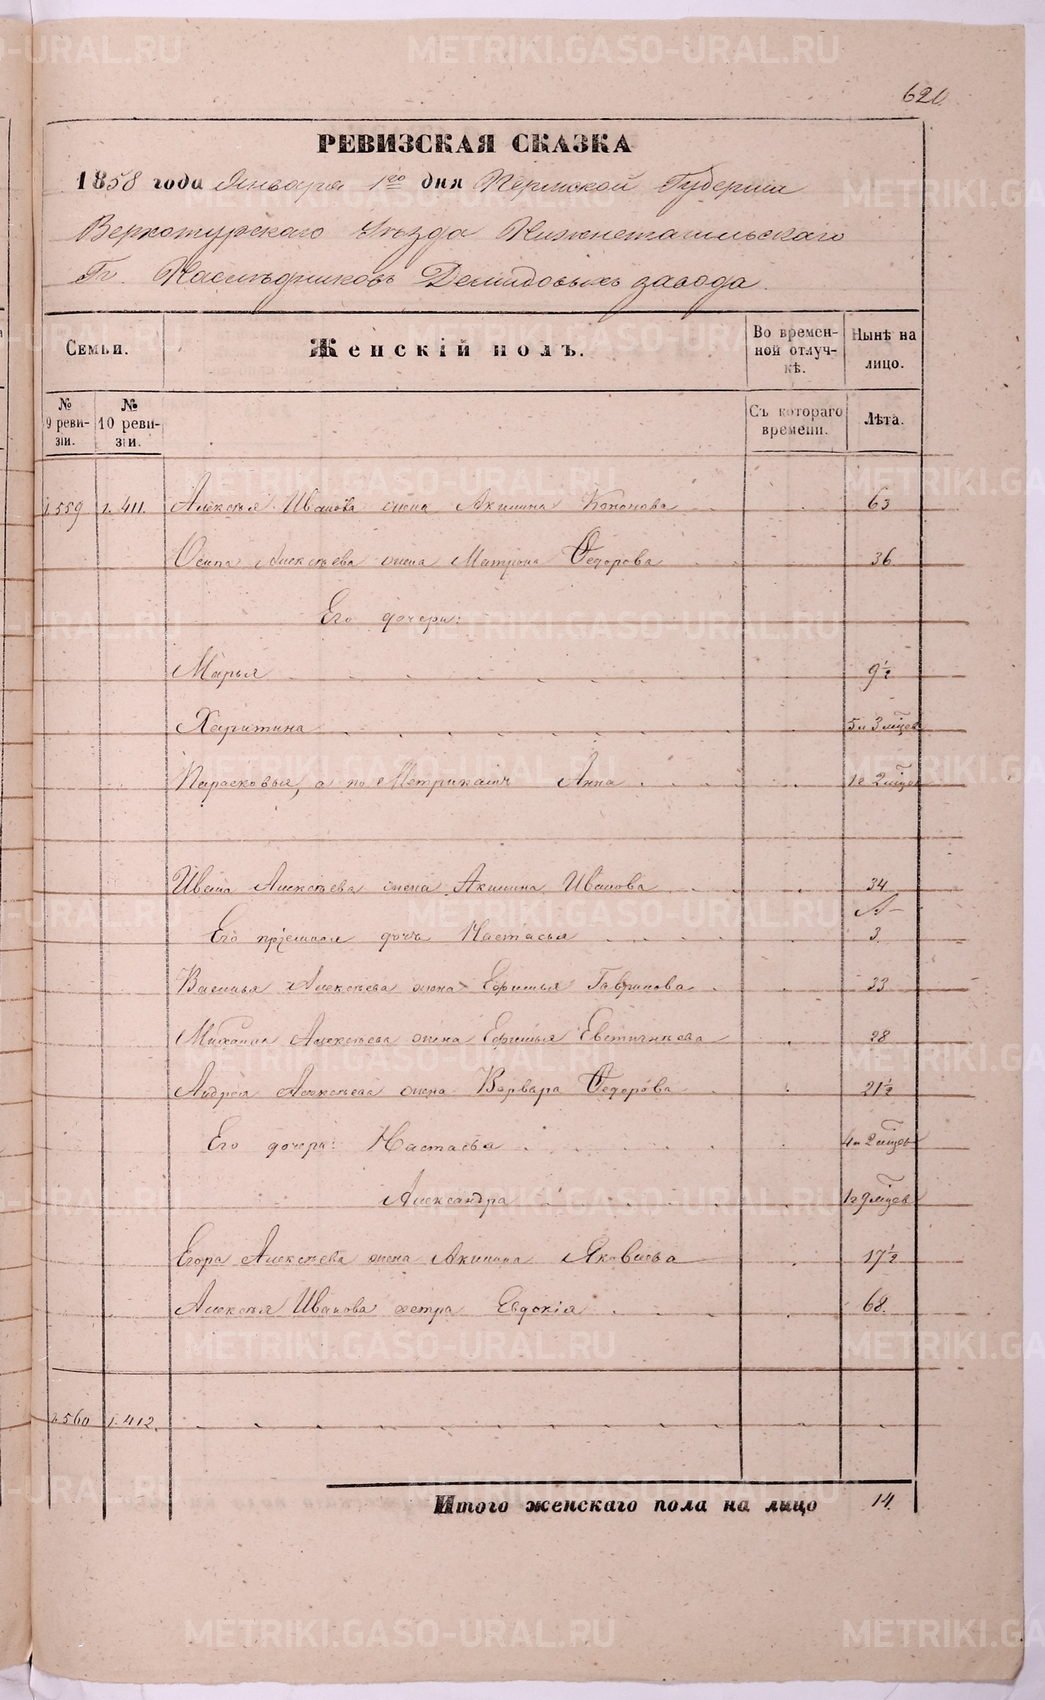 620.
РЕВИЗСКАЯ СКАЗКА
1858 года Января 1го дня Пермской Губернiи
Верхотурскаго Уѣзда Нижнетагильскаго
Гг. Наслѣдниковъ Демидовыхъ завода.
Семьи. Женскій полъ. Во времен- Нынѣ на
ной отлуч- лицо.
кѣ.
№ №
9 реви- 10 реви- Съ котораго Лѣта.
зіи. зіи. времени.
559 411. Алексѣя Иванова жена Акилина Кононова 63
Осипа Алексѣева жена Матрона Ѳедорова 36
Его дочери:
Марья 9½
Харитина 5 и 3 мѣцев
Парасковья, а по Метрикамъ Анна 1 г 2 мѣцев
Ивана Алексѣева жена Акилина Иванова 34
Его пріемная дочь Настасья 3
Василья Алексѣева жена Ефимья Гаврилова 33
Михаила Алексѣева жена Ефимья Евстигнѣева 28
Андрея Алексѣева жена Варвара Ѳедорова 21½
Его дочери: Настасья 4 и 2 мѣцев
Александра 1 г 9 мѣцев
Егора Алексѣева жена Акилина Яковлева 17½
Алексѣя Иванова сестра Евдокія 68.
560 412.
Итого женскаго пола на лицо 14
METRIKI.GASO-URAL.RU